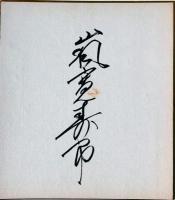 嵐寛寿郎